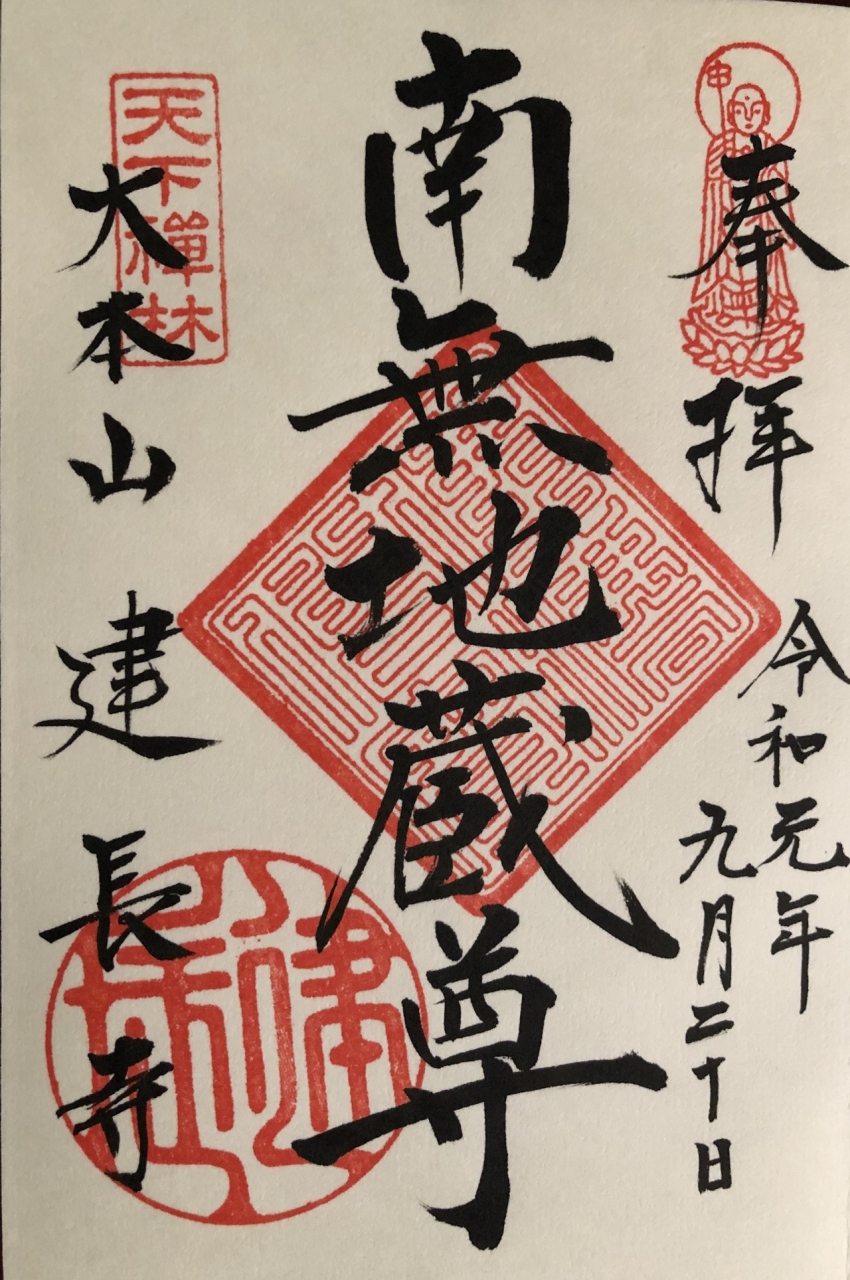 奉拝
令和元年
九月二十日
南無地蔵尊
天下禅林
大本山
建長寺